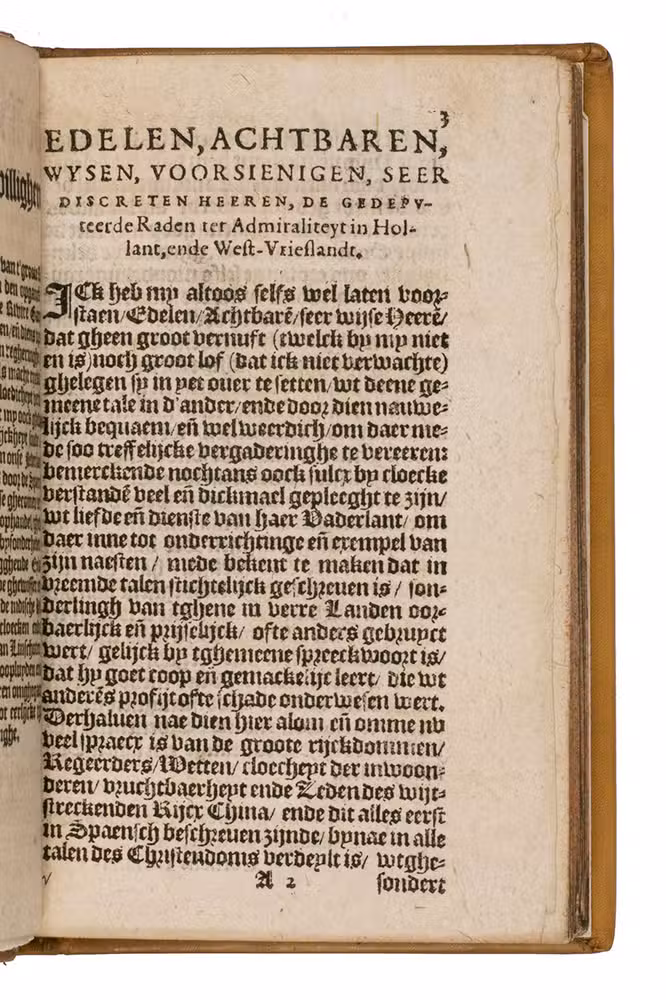 3
EDELEN, ACHTBAREN,
WYSEN, VOORSIENIGEN, SEER
DISCRETEN HEEREN, DE GEDEPV-
teerde Raden ter Admiraliteyt in Hol-
lant, ende West-Vrieslandt.
ICk heb my altoos selfs wel laten voor-
staen/Edelen/Achtbarē/seer wijse Heerē/
dat gheen groot vernuft (twelck by my niet
en is) noch groot lof (dat ick niet verwachte)
ghelegen sy in yet ouer te setten/wt deene ge-
meene tale in d'ander/ende door dien nauwe-
lijck bequaem/en̄ wel weerdich/om daer me-
de soo treffelijcke vergaderinghe te vereeren:
bemerckende nochtans oock sulcx by cloecke
verstandē veel en̄ dickmael gepleeght te zijn/
wt liefde en̄ dienste van haer Vaderlant/ om
daer inne tot onderrichtinge en̄ exempel van
zijn naesten / mede bekent te maken dat in
vreemde talen stichtelijck geschreuen is / son-
derlingh van tghene in verre Landen oor-
baerlijck en̄ prijselijck/ ofte anders gebruyct
wert/ gelijck by tghemeene spreeckwoort is/
dat hy goet coop en̄ gemackelijc leert/ die wt
anderēs profijt ofte schade onderwesen wert.
Derhaluen nae dien hier alom en̄ omme nv
veel spraecx is van de groote rijckdommen/
Regeerders/Wetten/ cloecheyt der inwoon-
deren/ vruchtbaerheyt ende Zeden des wijt-
streckenden Rijcx China/ ende dit alles eerst
in Spaensch beschreuen zijnde/ bynae in alle
talen des Christendoms verdeylt is/ wtghe-
A 2 sondert